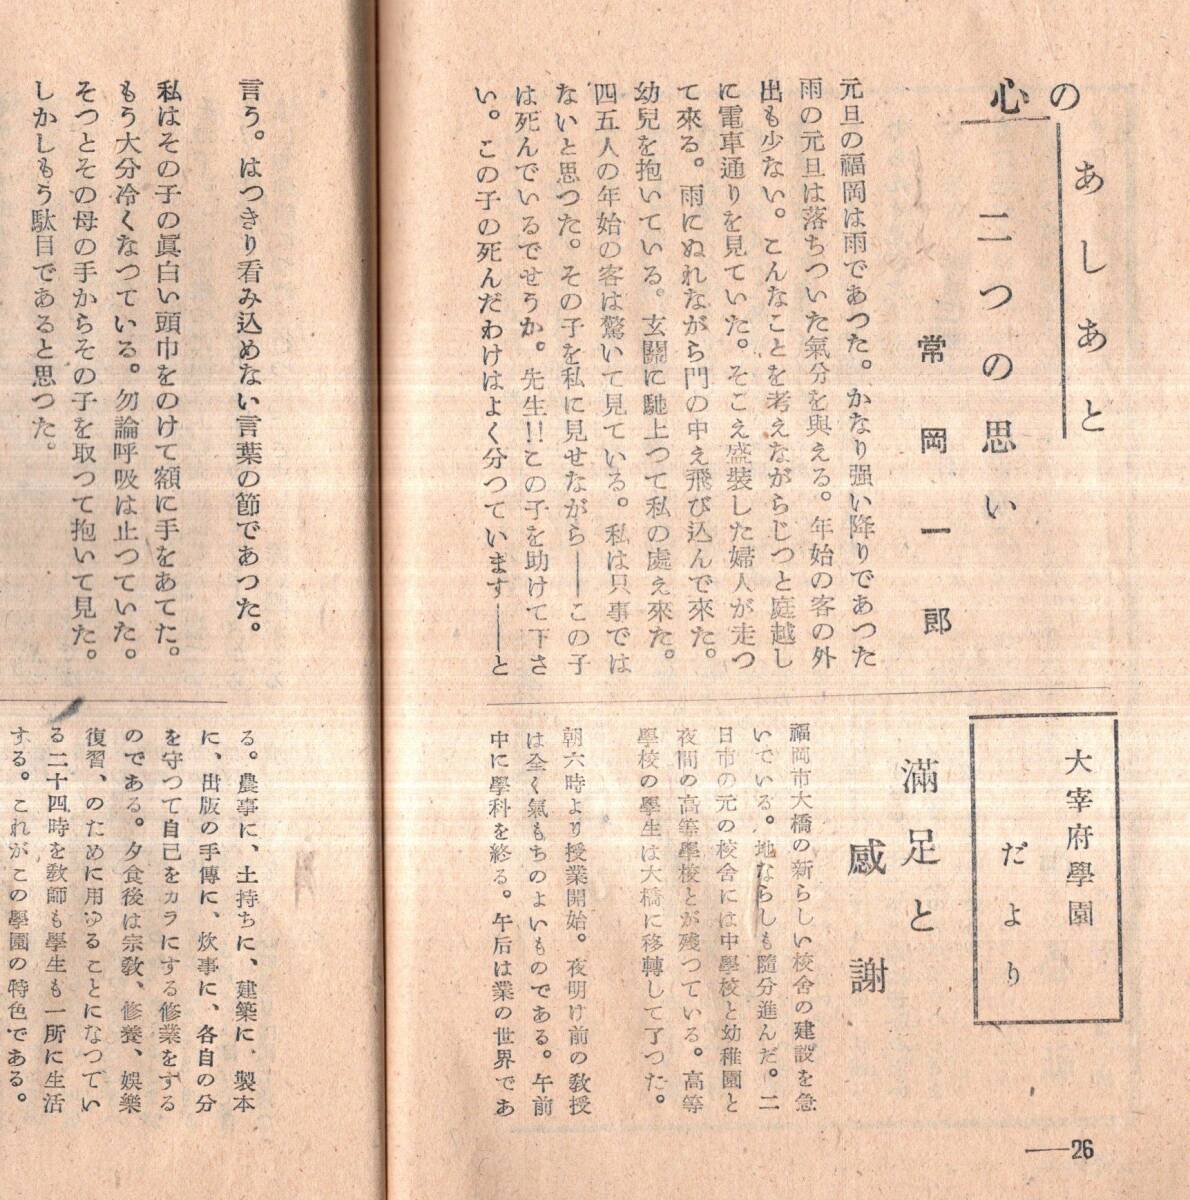 心の
あしあと
二つの思い
常岡一郎
元旦の福岡は雨であつた。かなり强い降りであつた
雨の元旦は落ちついた氣分を與える。年始の客の外
出も少ない。こんなことを考えながらじつと庭越し
に電車通りを見ていた。そこえ盛裝した婦人が走つ
て來る。雨にぬれながら門の中え飛び込んで來た。
幼兒を抱いている。玄關に馳上つて私の處え來た。
四五人の年始の客は驚いて見ている。私は只事では
ないと思つた。その子を私に見せながら——この子
は死んでいるでせうか。先生!!この子を助けて下さ
い。この子の死んだわけはよく分つています——と
言う。はつきり看み込めない言葉の節であつた。
私はその子の眞白い頭巾をのけて額に手をあてた。
もう大分冷くなつている。勿論呼吸は止つていた。
そつとその母の手からその子を取つて抱いて見た。
しかしもう駄目であると思つた。
大宰府學園
だより
滿足と
感謝
福岡市大橋の新らしい校舍の建設を急
いでいる。地ならしも隨分進んだ。二
日市の元の校舍には中學校と幼稚園と
夜間の高等學校とが殘つている。高等
學校の學生は大橋に移轉して了つた。
朝六時より授業開始。夜明け前の敎授
は全く氣もちのよいものである。午前
中に學科を終る。午后は業の世界であ
る。農事に、土持ちに、建築に、製本
に、出版の手傳に、炊事に、各自の分
を守つて自己をカラにする修業をする
のである。夕食後は宗敎、修養、娛樂
復習、のために用ゆることになつてい
る二十四時を敎師も學生も一所に生活
する。これがこの學園の特色である。
—26